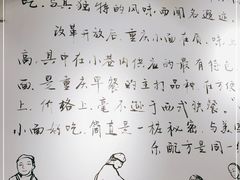 吃，与其独特的风味，西闻名遐迩
改革开放后，重庆小面在麻、味上
高，其中在小巷内供应的最有特色
面，是重庆早餐的主打品种，在方便
上，价格上，毫不逊于西式快餐
小面好吃，简直是一桩秘密，与美
乐配方是同一